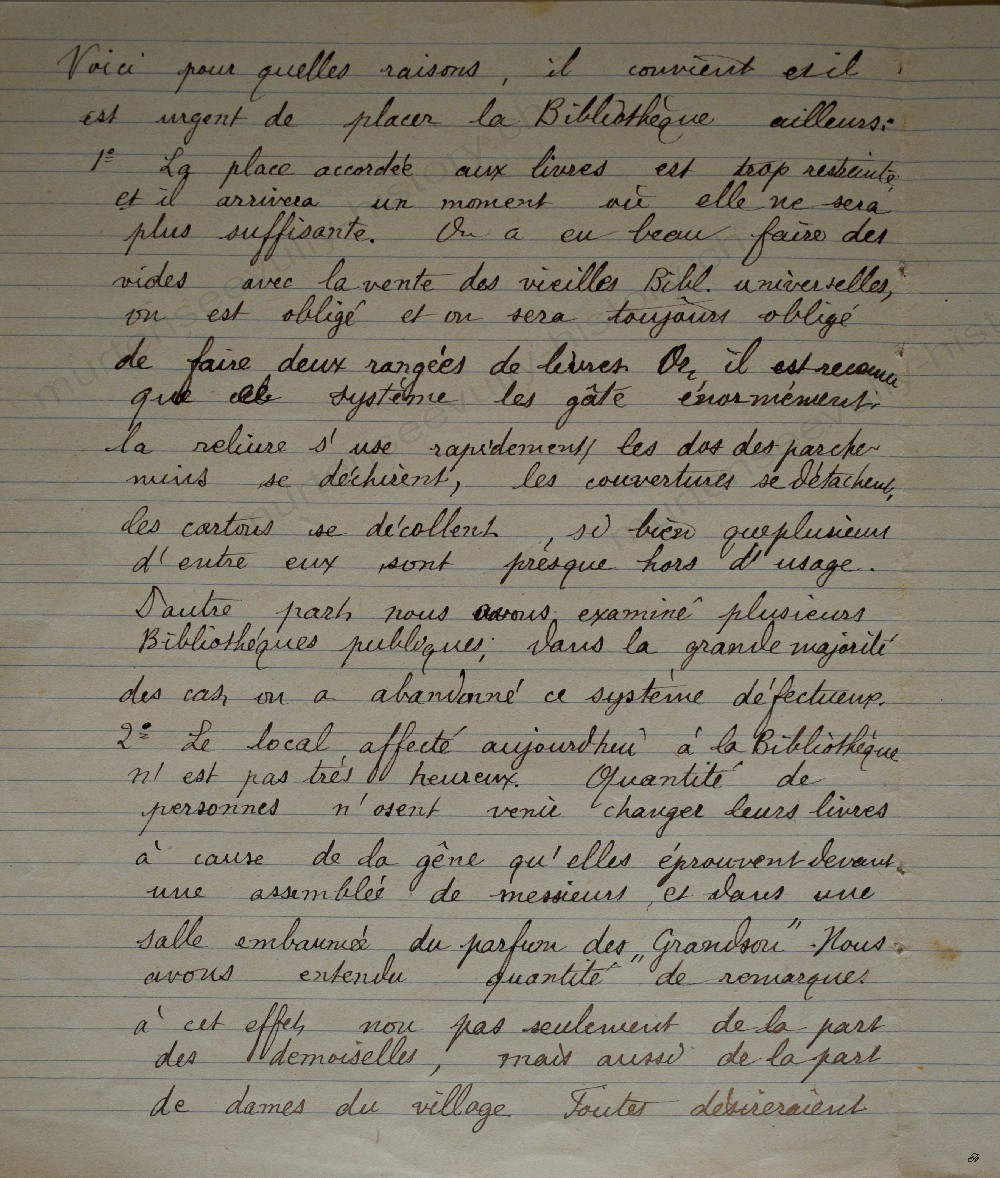 Voici pour quelles raisons, il convient et il
est urgent de placer la Bibliothèque ailleurs:
1º La place accordée aux livres est trop restreinte,
et il arrivera un moment où elle ne sera
plus suffisante. On a eu beau faire des
vides avec la vente des vieilles Bibl. universelles,
on est obligé et on sera toujours obligé
de faire deux rangées de livres. Or, il est reconnu
que ce système les gâte énormément;
la reliure s'use rapidement, les dos des parche-
mins se déchirent, les couvertures se détachent,
les cartons se décollent, si bien que plusieurs
d'entre eux sont presque hors d'usage.
D'autre part, nous avons examiné plusieurs
Bibliothèques publiques; dans la grande majorité
des cas, on a abandonné ce système défectueux.
2º Le local affecté aujourd'hui à la Bibliothèque
n'est pas très heureux. Quantité de
personnes n'osent venir changer leurs livres
à cause de la gêne qu'elles éprouvent devant
une assemblée de messieurs, et dans une
salle embaumée du parfum des „Grandson". Nous
avons entendu quantité de remarques
à cet effet, non pas seulement de la part
des demoiselles, mais aussi de la part
de dames du village. Toutes désireraient